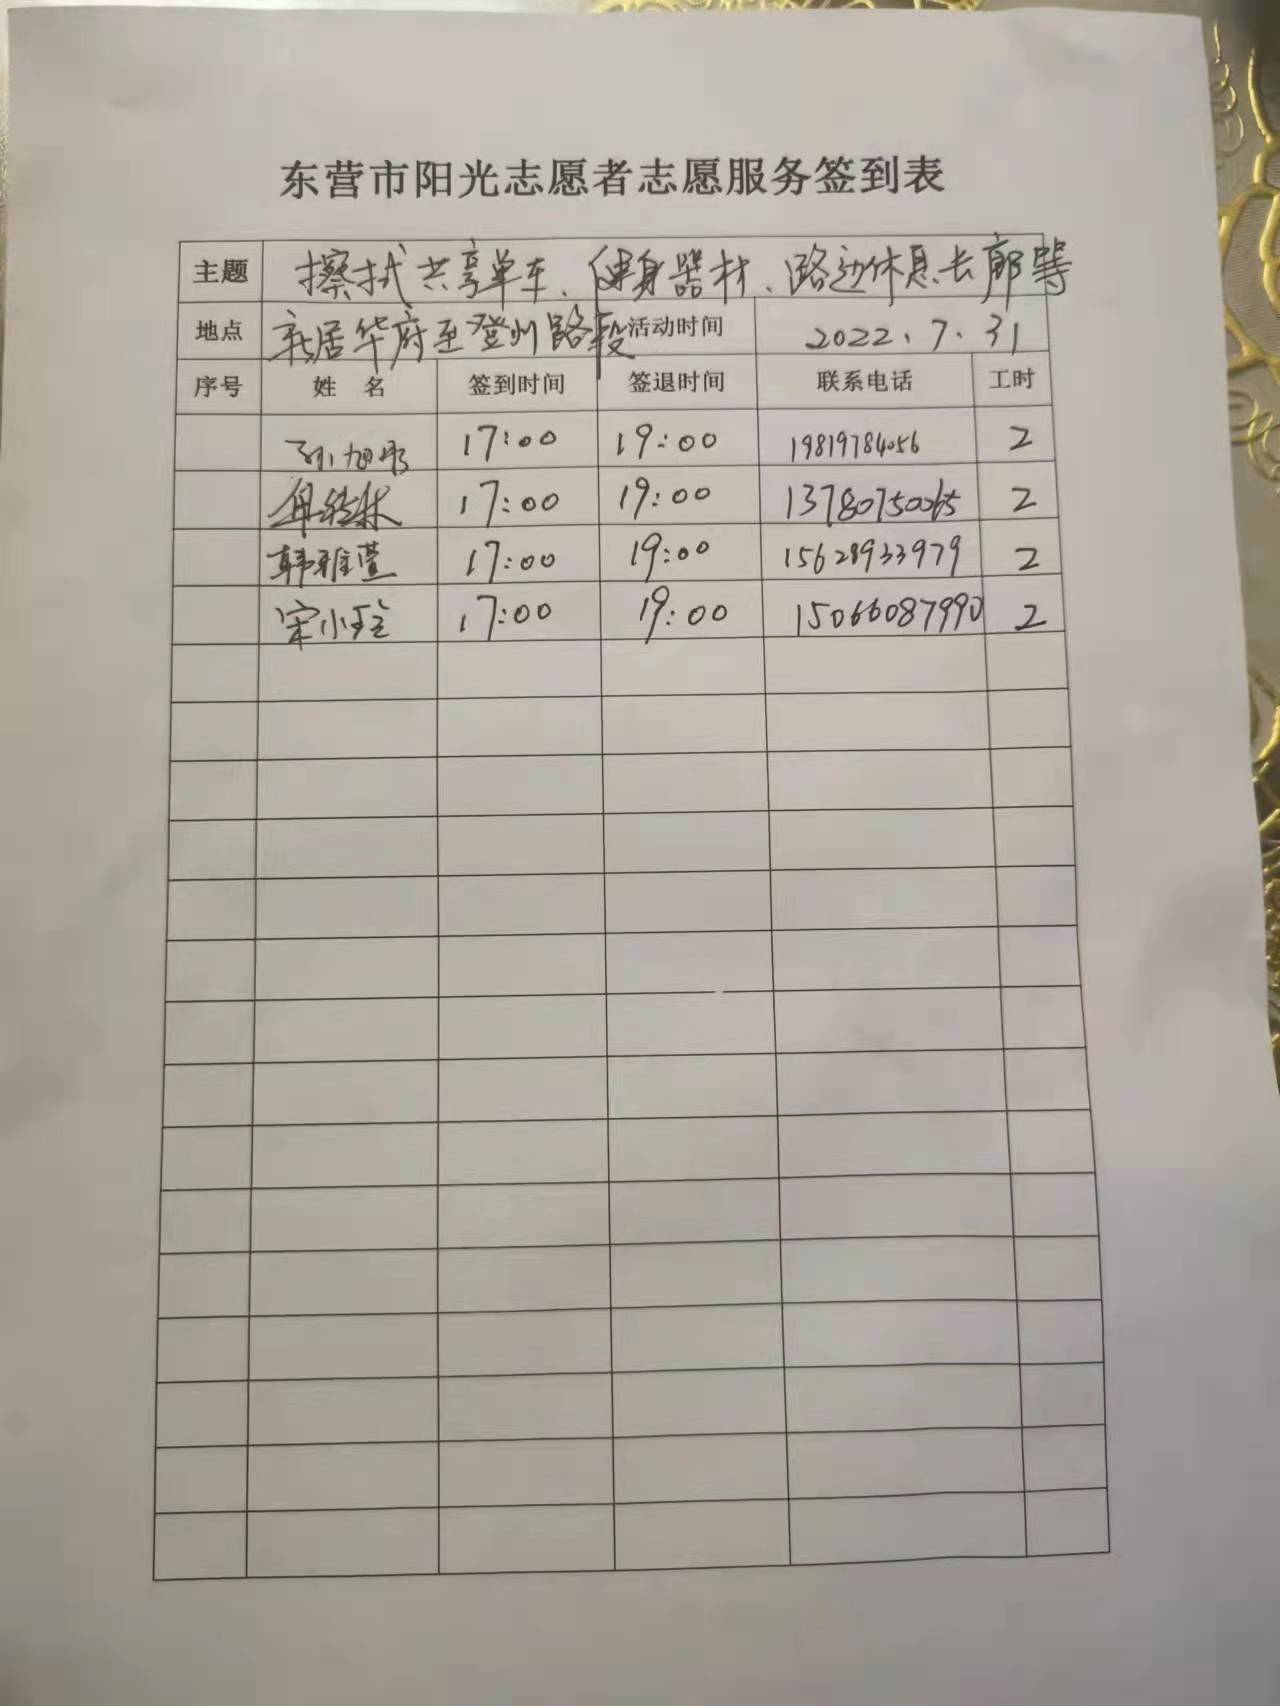 东营市阳光志愿者志愿服务签到表
主题 擦拭共享单车、健身器材、路边休息长廊等
地点 居华府至登州路段 活动时间 2022.7.31
序号 姓 名 签到时间 签退时间 联系电话 工时
孙旭彤 17:00 19:00 19819784056 2
17:00 19:00 13780750065 2
韩雅萱 17:00 19:00 15628933979 2
宋小 17:00 19:00 15066087990 2